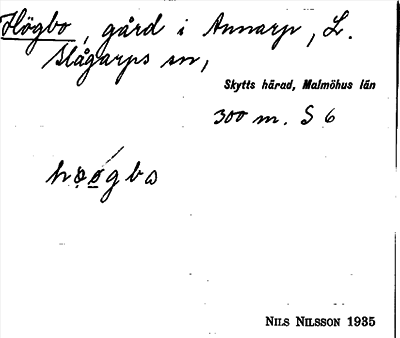 Högbo, gård i Annarp, L.
Slågarps sn,
Skytts härad, Malmöhus län
300 m. S 6
NILS NILSSON 1935